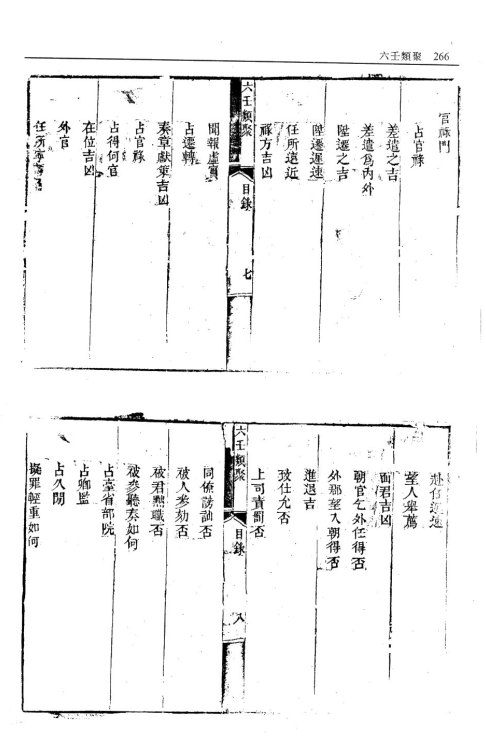 六壬類聚 266
官祿門
占官祿
差遣之吉
差遣爲內外
陞遷之吉
陞遷遲速
任所遠近
祿方吉凶
六壬類聚
目錄
七
聞報虛實
占遷轉
奏章獻策吉凶
占官祿
占得何官
在位吉凶
外官
任所
赴任遲速
望人舉薦
面君吉凶
朝官乞外任得否
外郡望入朝得否
進退吉
致仕允否
上司責罰否
六壬類聚
目錄
八
同僚謗訕否
被人參劾否
被君黜職否
被參聽奏如何
占臺省部院
占卿監
占久閒
擬罪輕重如何